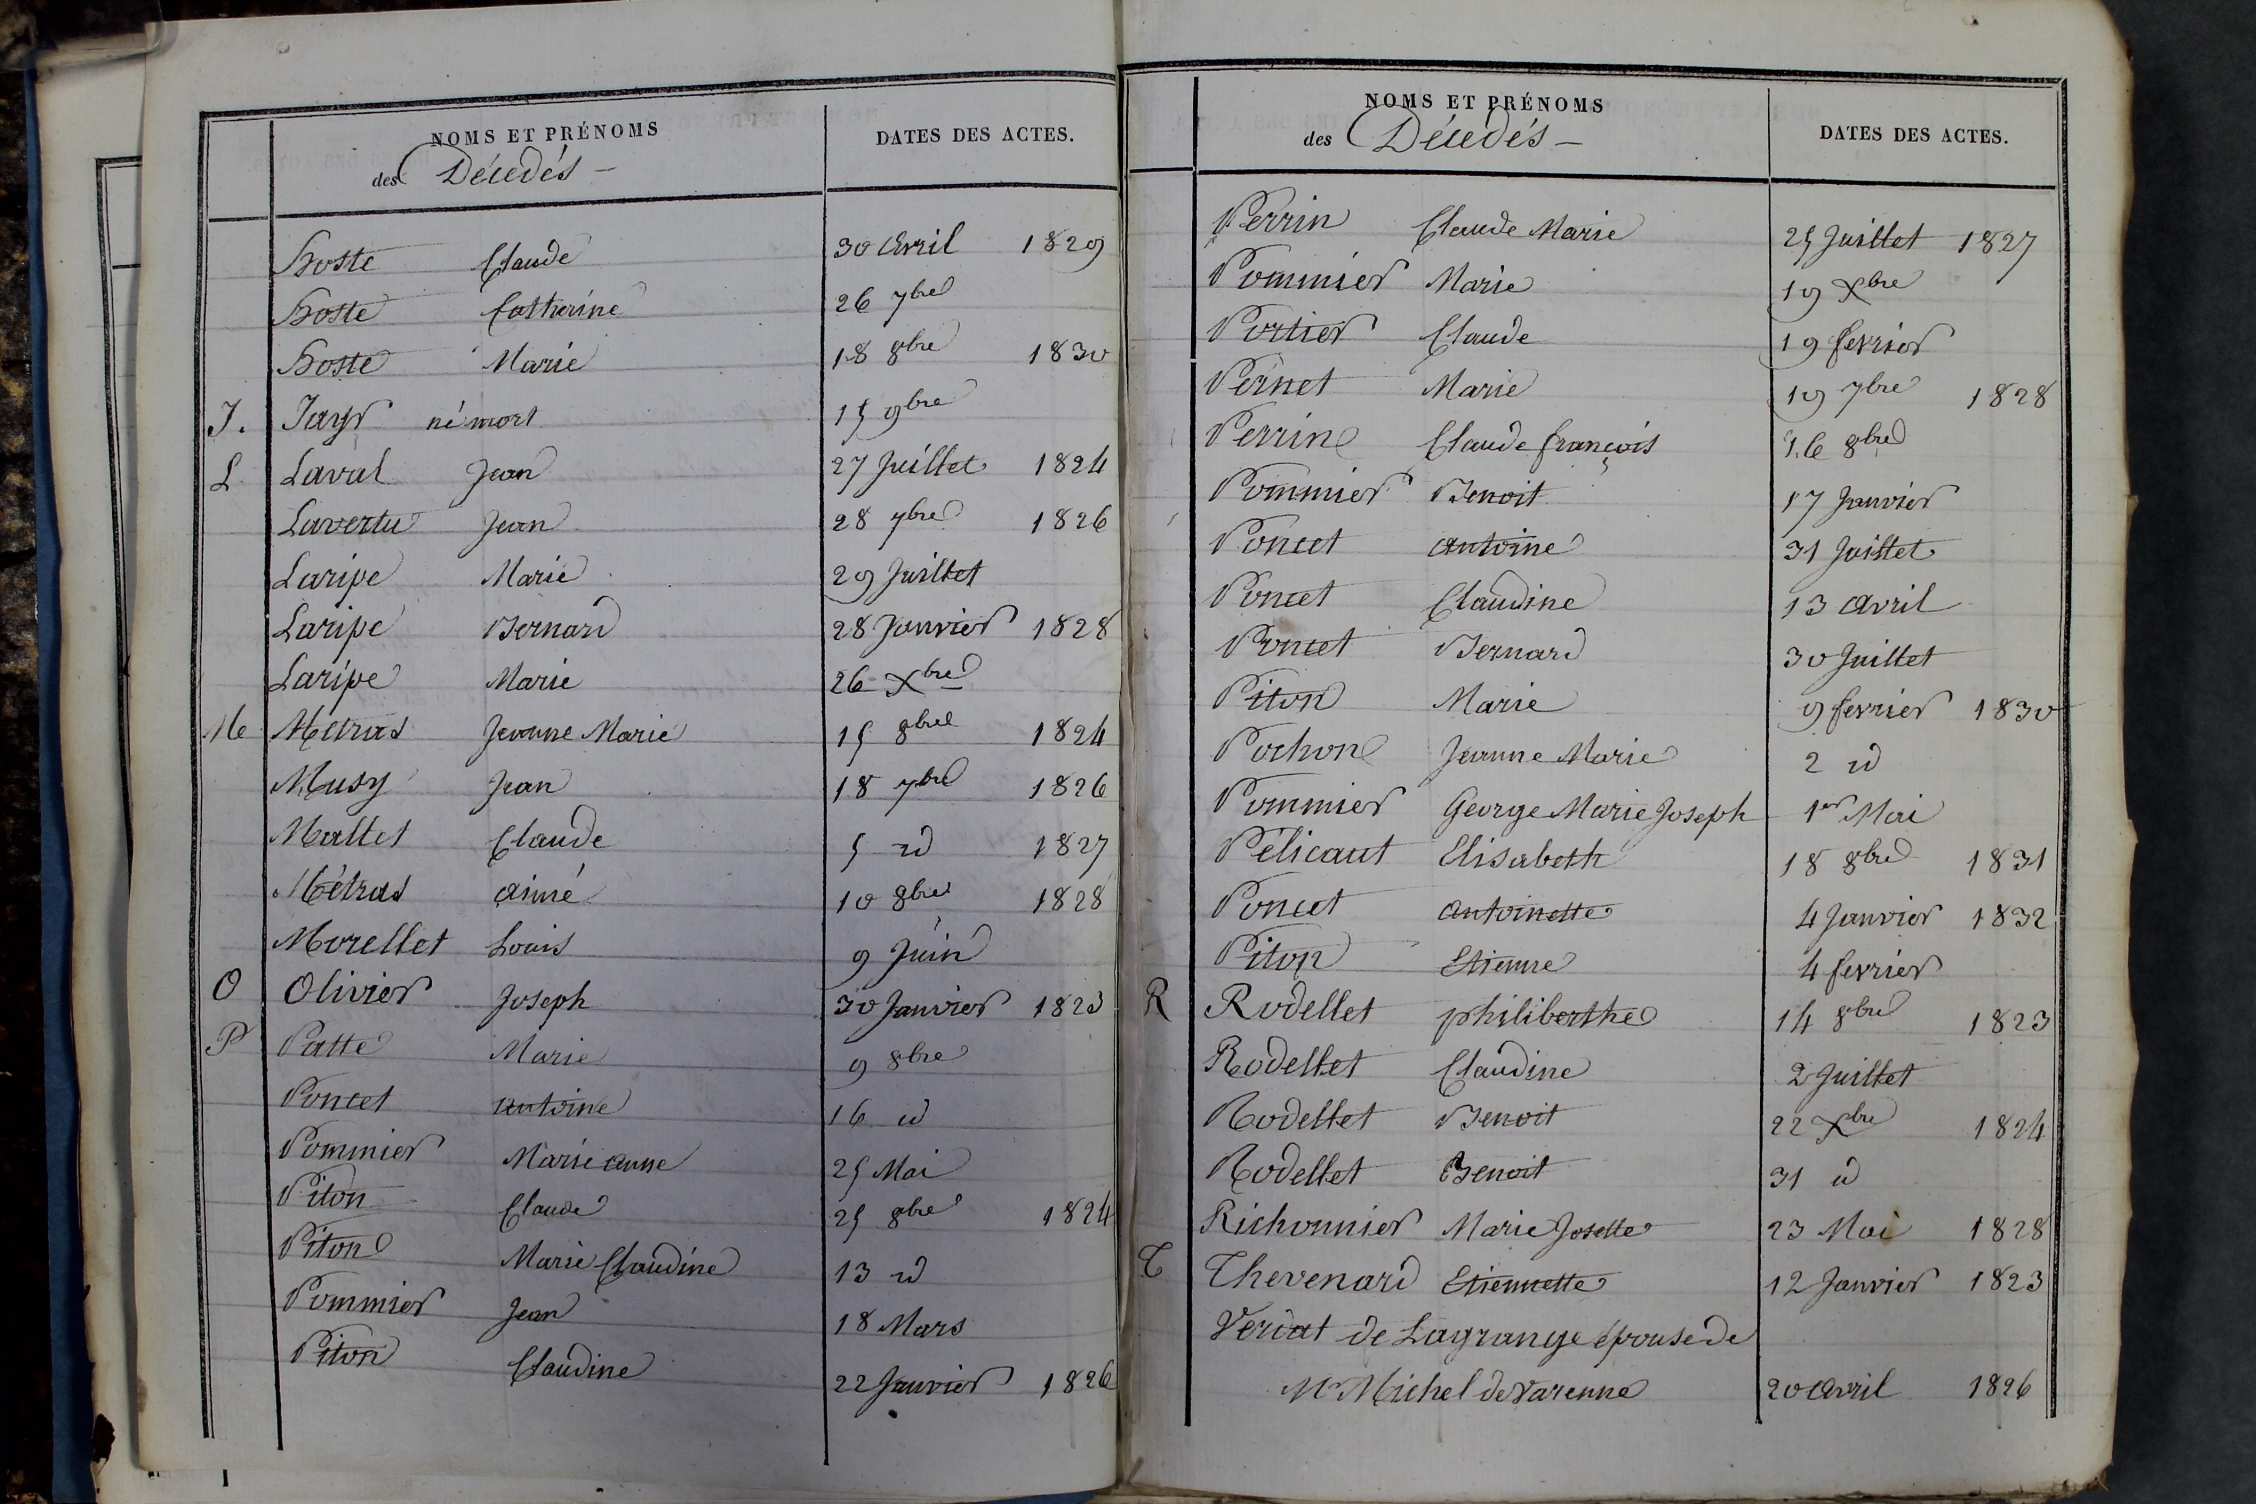 NOMS ET PRÉNOMS
des Décédés —
DATES DES ACTES.
Hoste Claude 30 Avril 1829
Hoste Catherine 26 7bre
Hoste Marie 18 8bre 1830
J. Jayr né mort 15 9bre
L Laval Jean 27 Juillet 1824
Lavertu Jean 28 7bre 1826
Laripe Marie 29 Juillet
Laripe Bernard 28 Janvier 1828
Laripe Marie 26 Xbre
M Metras Jeanne Marie 15 8bre 1824
Musy Jean 18 7bre 1826
Mallet Claude 5 id 1827
Métras Aimé 10 8bre 1828
Morellet Louis 9 Juin
O Olivier Joseph 30 Janvier 1823
P Patte Marie 9 8bre
Poncet Antoine 16 id
Pommier Marie Anne 25 Mai
Piton Claude 25 8bre 1824
Piton Marie Claudine 13 id
Pommier Jean 18 Mars
Piton Claudine 22 Janvier 1826
NOMS ET PRÉNOMS
des Décédés —
DATES DES ACTES.
Perrin Claude Marie 25 Juillet 1827
Pommier Marie 19 Xbre
Portier Claude 19 fevrier
Pernet Marie 19 7bre 1828
Perrin Claude françois 16 8bre
Pommier Benoit 17 Janvier
Poncet Antoine 31 Juillet
Poncet Claudine 13 Avril
Poncet Bernard 30 Juillet
Piton Marie 9 fevrier 1830
Pochon Jeanne Marie 2 id
Pommier George Marie Joseph 1er Mai
Pélicaut Elisabeth 18 8bre 1831
Poncet Antoinette 4 Janvier 1832
Piton Etienne 4 fevrier
R Rodellet philiberthe 14 8bre 1823
Rodellet Claudine 2 Juillet
Rodellet Benoit 22 Xbre 1824
Rodellet Benoit 31 id
Richonnier Marie Josette 23 Mai 1828
T Thevenard Etiennette 12 Janvier 1823
Verdat de Lagrange épouse de
Mr Michel de Varenne 20 Avril 1826